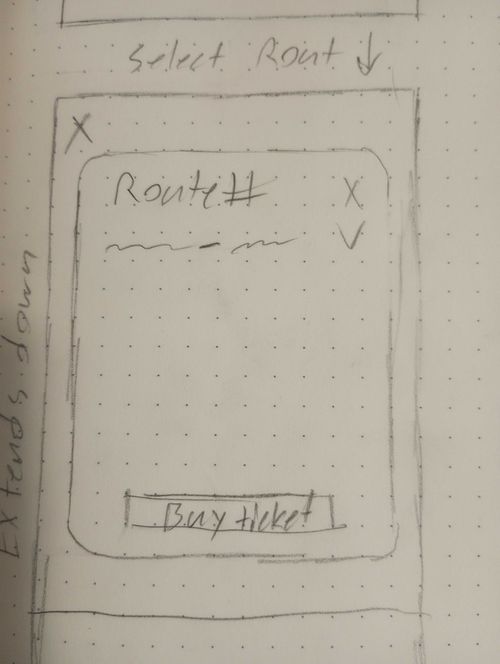 Select Rout ↓
X
Route# X
~ - ~ V
Buy ticket
Extends down